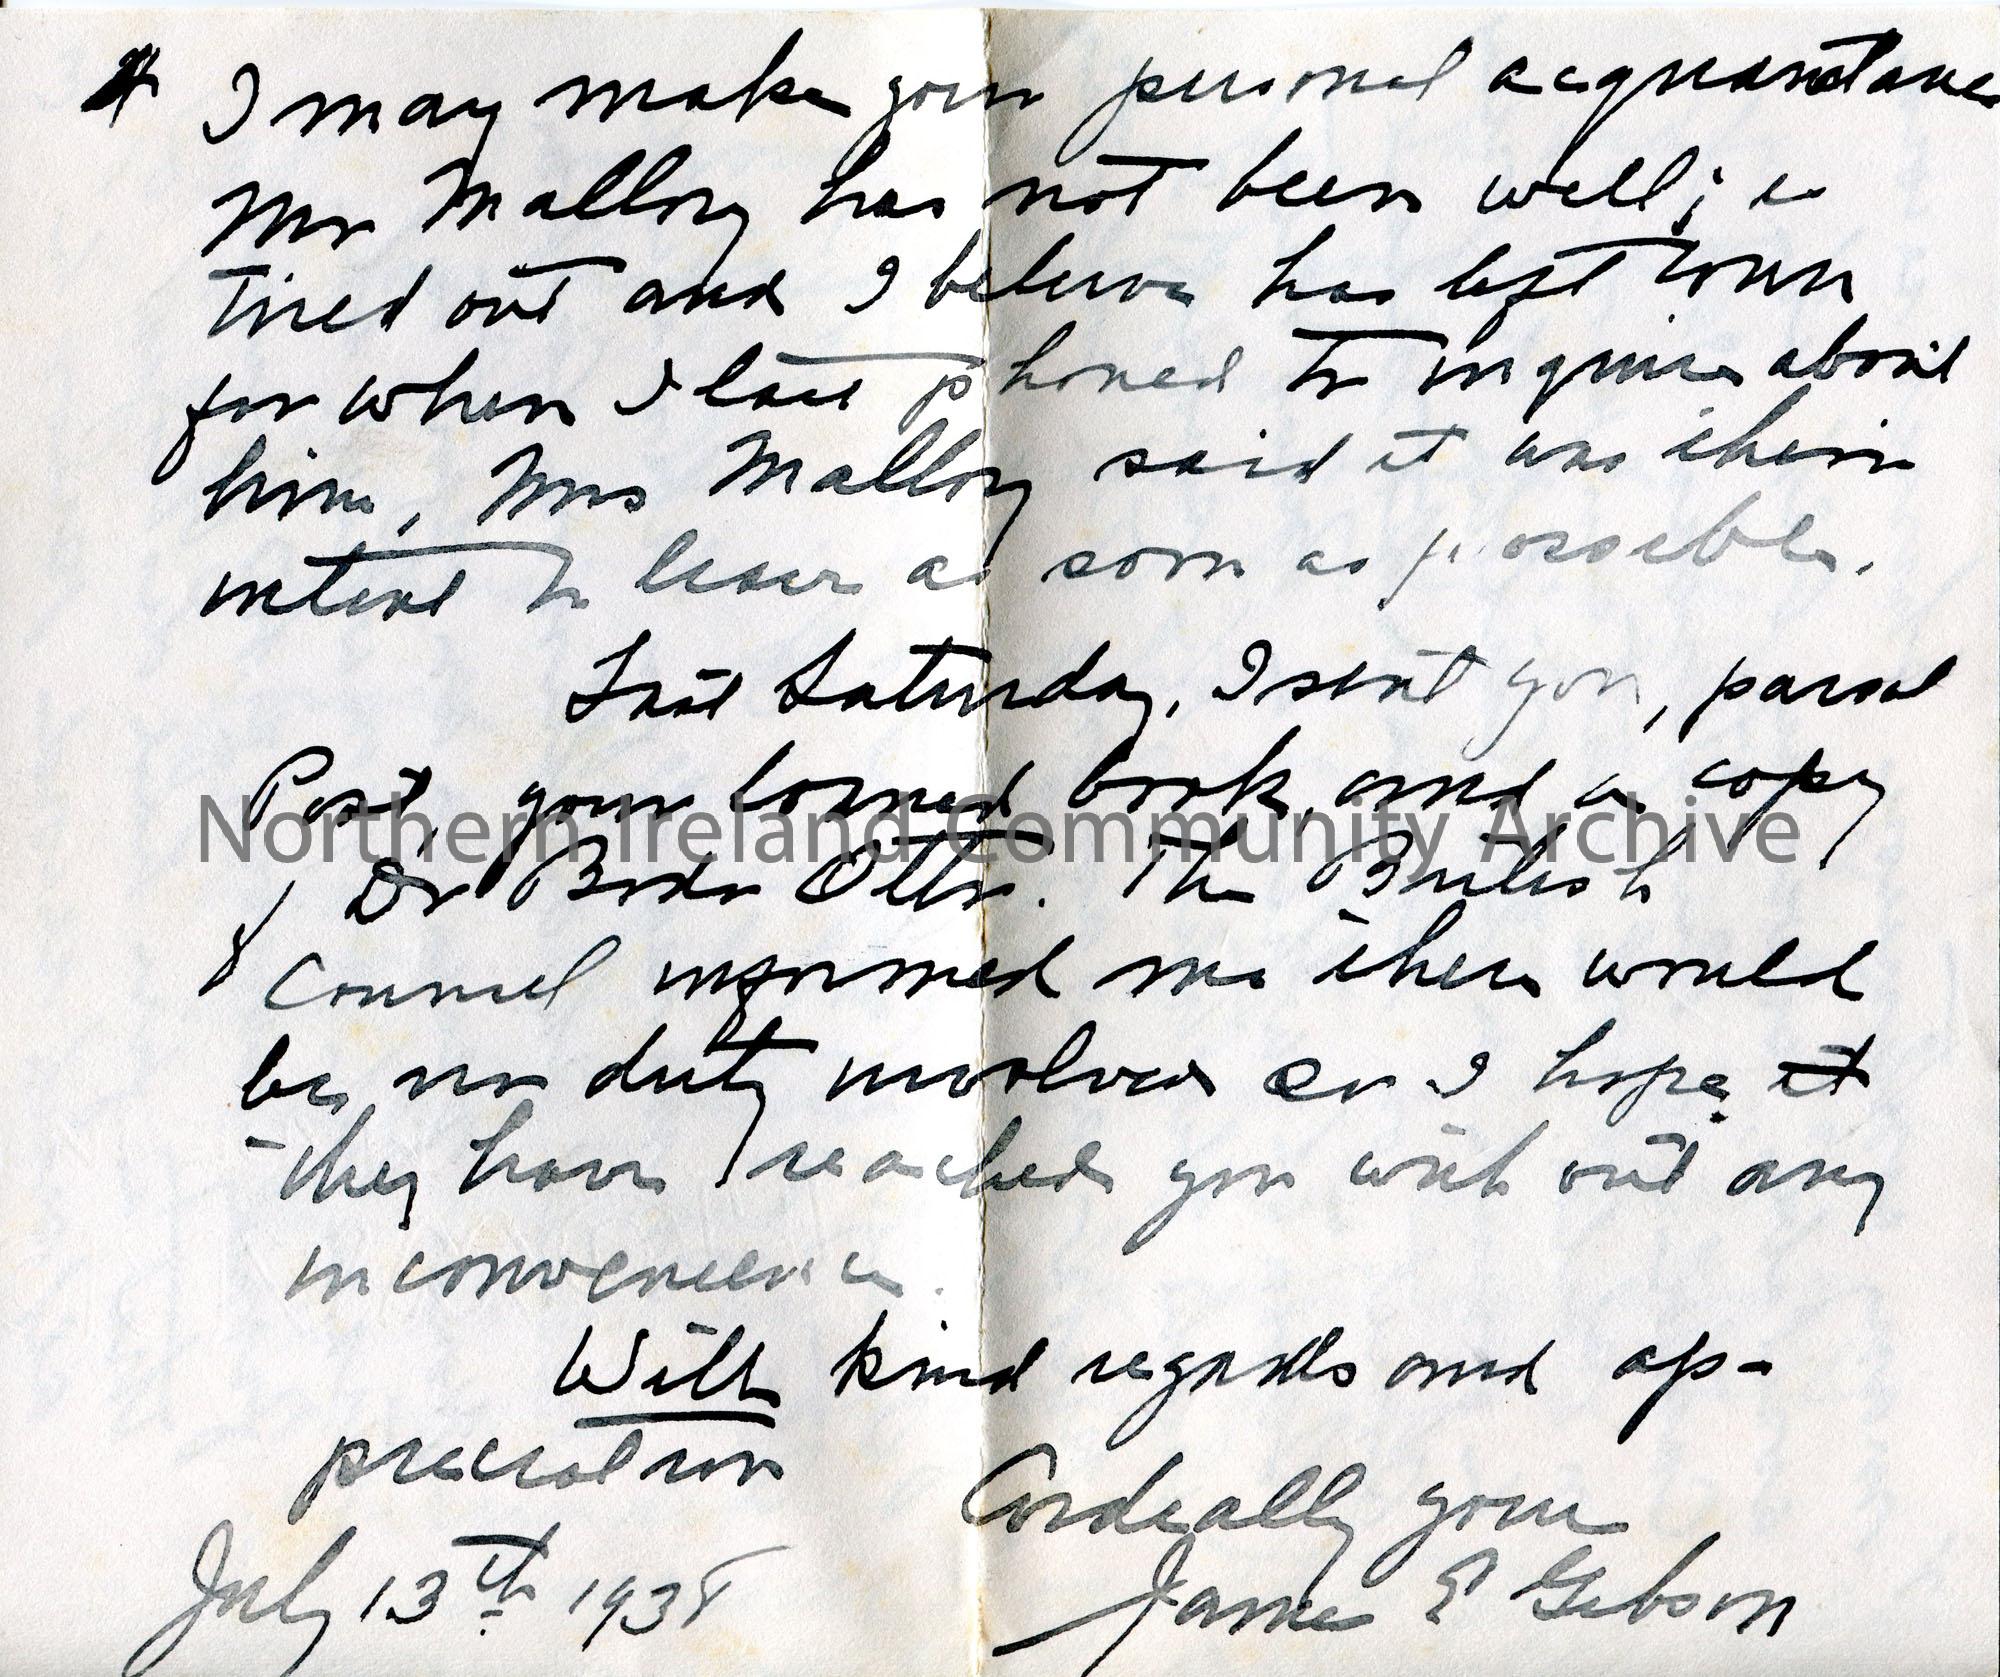 I may make your personal acquaintance
Mr Mallory has not been well; is
tired out and I believe has left town
for when I last phoned to inquire about
him, Mrs Mallory said it was their
intent to leave as soon as possible.
Last Saturday, I sent you, parcel
Post, your loaned book, and a copy
of Dr Bodo Otto. The British
Counsel informed me there would
be no duty involved so I hope it
they have reached you with out any
inconvenience.
With kind regards and ap-
preciation
Cordially yours
James E Gibson
July 13th 1938
Northern Ireland Community Archive